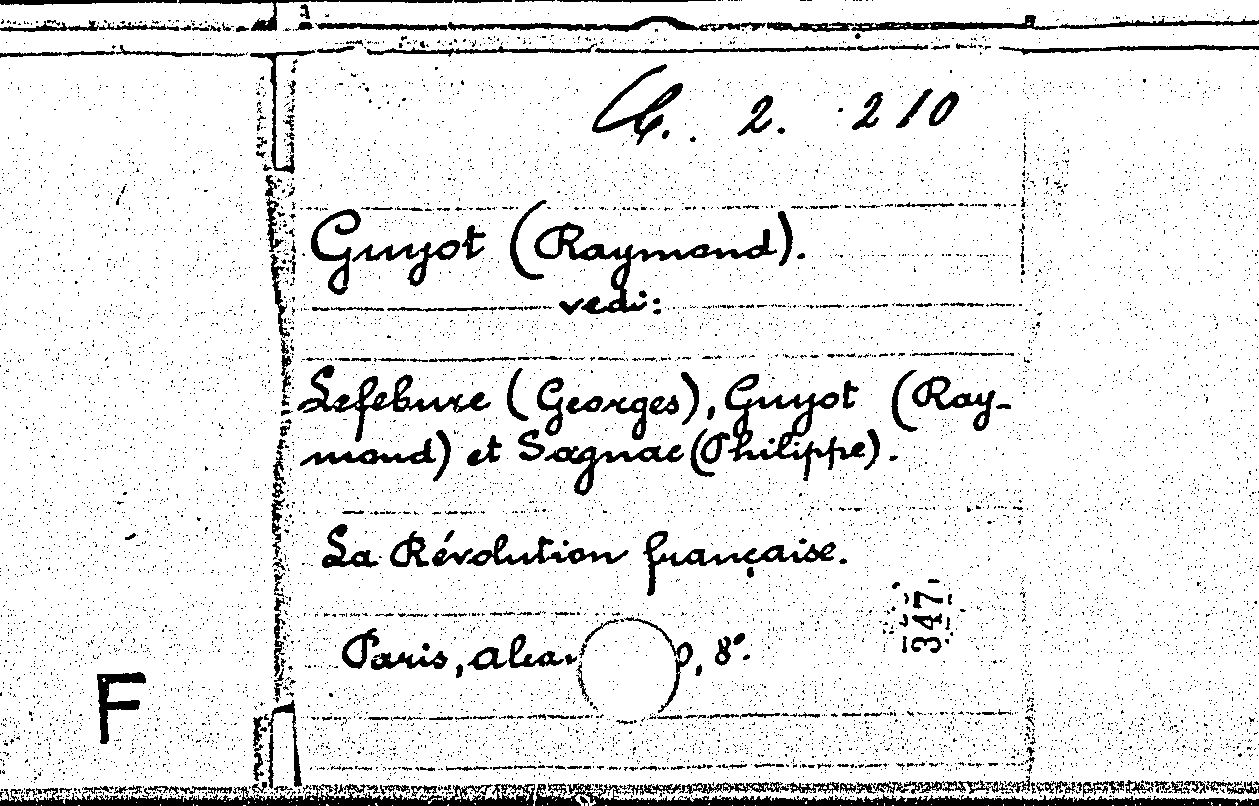 2. 210
Guyot (Raymond).
vedi:
Lefebvre (Georges), Guyot (Ray-
mond) et Sagnac (Philippe).
La Révolution française.
Paris, Alcan 0, 8°.
347
F